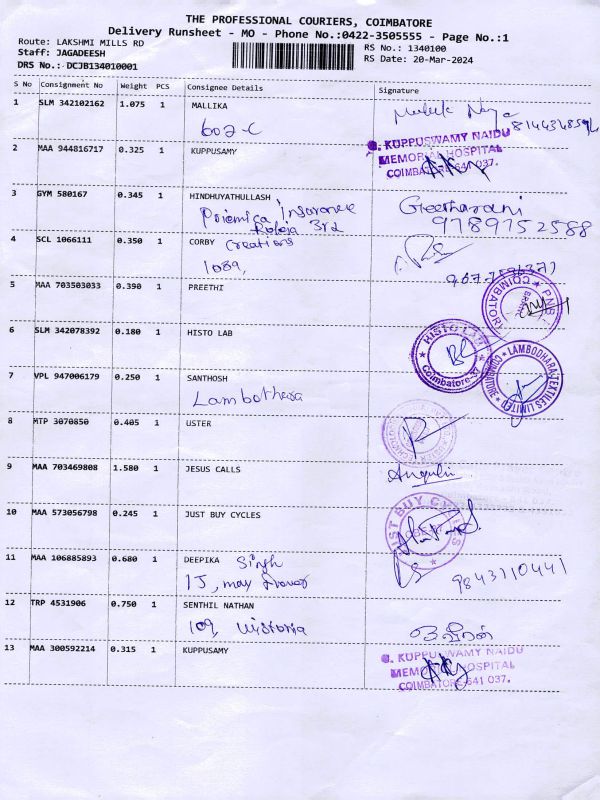 THE PROFESSIONAL COURIERS, COIMBATORE
Delivery Runsheet - MO - Phone No.:0422-3505555 - Page No.:1
Route: LAKSHMI MILLS RD
Staff: JAGADEESH
DRS No.: DCJB134010001
RS No.: 1340100
RS Date: 20-Mar-2024
S No Consignment No Weight PCS Consignee Details Signature
1 SLM 342102162 1.075 1 MALLIKA
602-C
2 MAA 944816717 0.325 1 KUPPUSAMY
G. KUPPUSWAMY NAIDU
MEMORIAL HOSPITAL
COIMBATORE-641 037.
3 GYM 580167 0.345 1 HINDHUYATHULLASH
3rd
Geetharani
9789752588
4 SCL 1066111 0.350 1 CORBY Creations
1089,
5 MAA 703503033 0.390 1 PREETHI
PNB
COIMBATORE
6 SLM 342078392 0.180 1 HISTO LAB
HISTO LAB
Coimbatore-37
7 VPL 947006179 0.250 1 SANTHOSH
Lambothara
LAMBODHARA TEXTILES LIMITED
COIMBATORE
8 MTP 3070850 0.405 1 USTER
9 MAA 703469808 1.580 1 JESUS CALLS
10 MAA 573056798 0.245 1 JUST BUY CYCLES
JUST BUY CYCLES
11 MAA 106885893 0.680 1 DEEPIKA Singh
1J, may flower
9843110441
12 TRP 4531906 0.750 1 SENTHIL NATHAN
109, Victoria
13 MAA 300592214 0.315 1 KUPPUSAMY
G. KUPPUSWAMY NAIDU
MEMORIAL HOSPITAL
COIMBATORE-641 037.